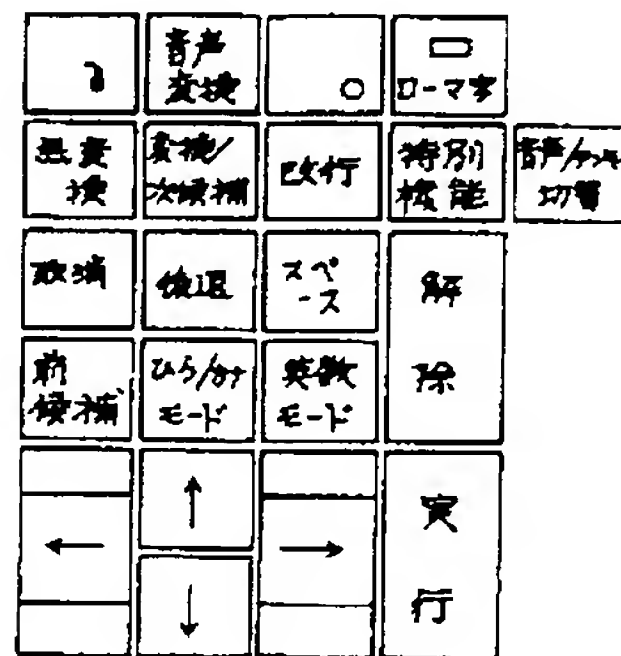 音声
変換
ローマ字
無変
換
変換/
次候補
改行
特別
機能
音声/テンキー
切替
取消
後退
スペ
ース
解
除
前
候補
ひら/カナ
モード
英数
モード
↑
←
→
実
行
↓